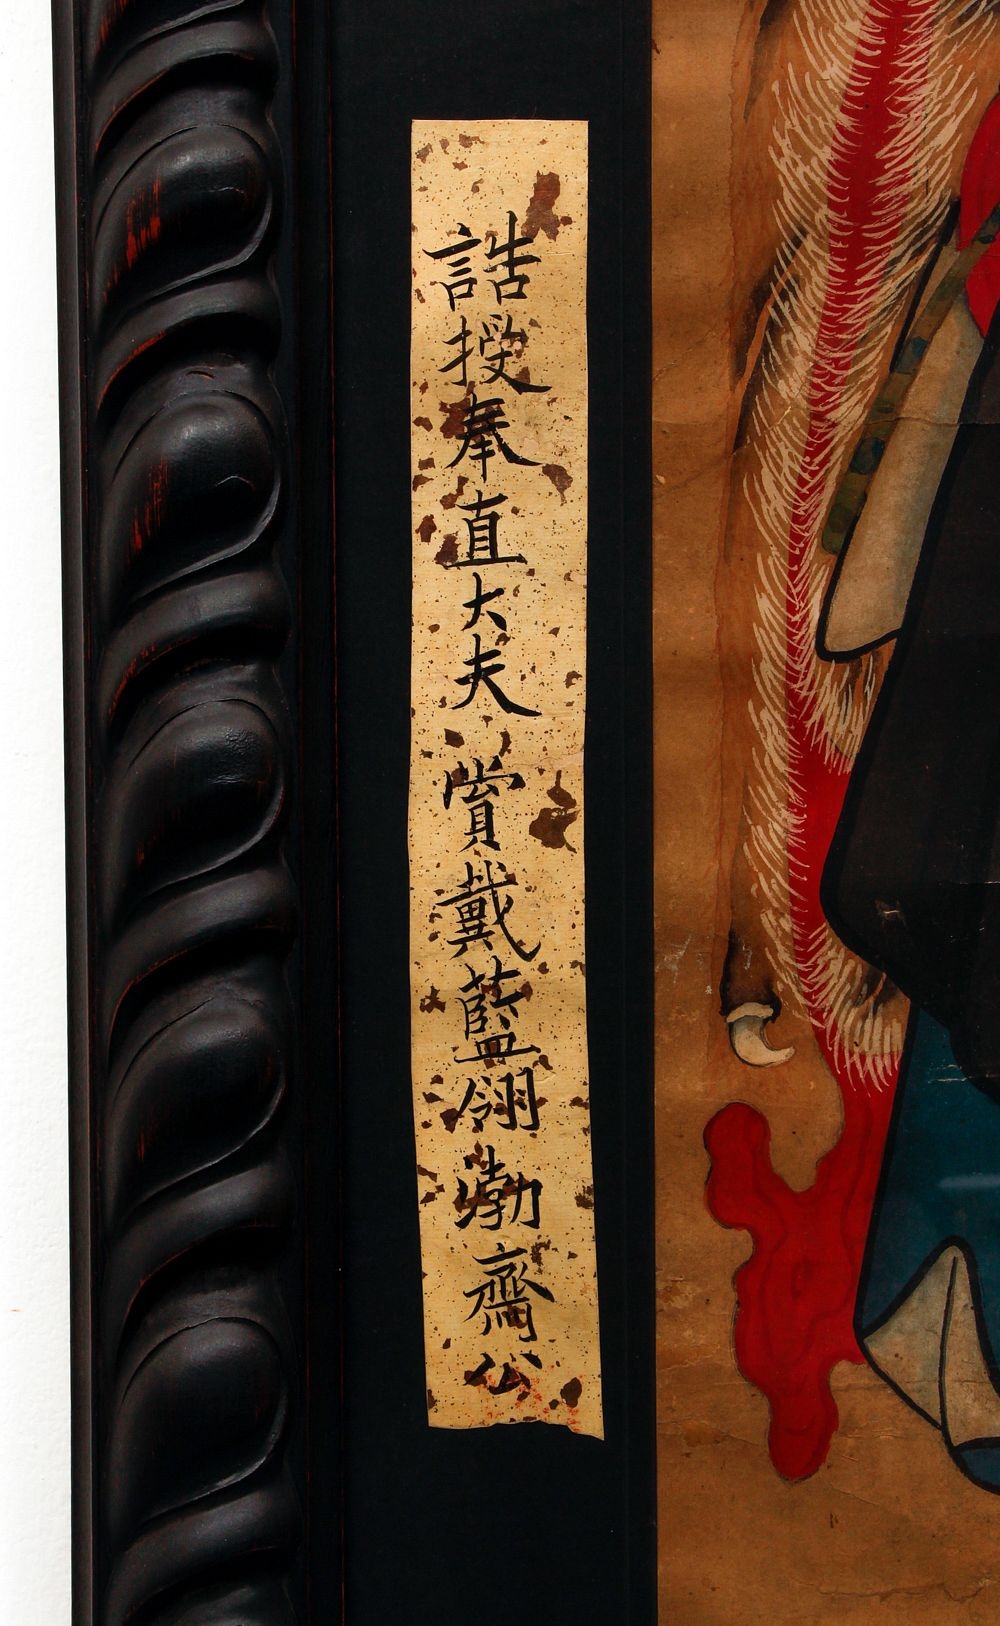 誥授奉直大夫賞戴藍翎渤齋公